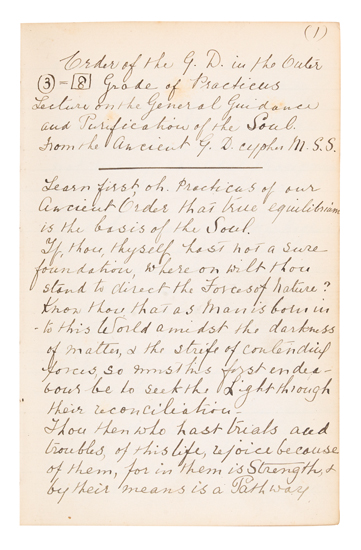 (1)
Order of the G. D. in the Outer
(3) = [8] Grade of Practicus
Lecture on the General Guidance
and Purification of the Soul.
from the Ancient G. D cypher M.S.S.
Learn first, oh. Practicus of our
Ancient Order that true equilibrium
is the basis of the Soul.
If, thou, thyself hast not a sure
foundation, where on wilt thou
stand to direct the Forces of Nature?
Know thou that as Man is born in
to this World amidst the darkness
of matter, & the strife of contending
forces, so must his first endea-
vour be to seek the Light through
their reconciliation -
Thou then who hast trials and
troubles, of this life, rejoice because
of them, for in them is Strength, &
by their means is a Pathway